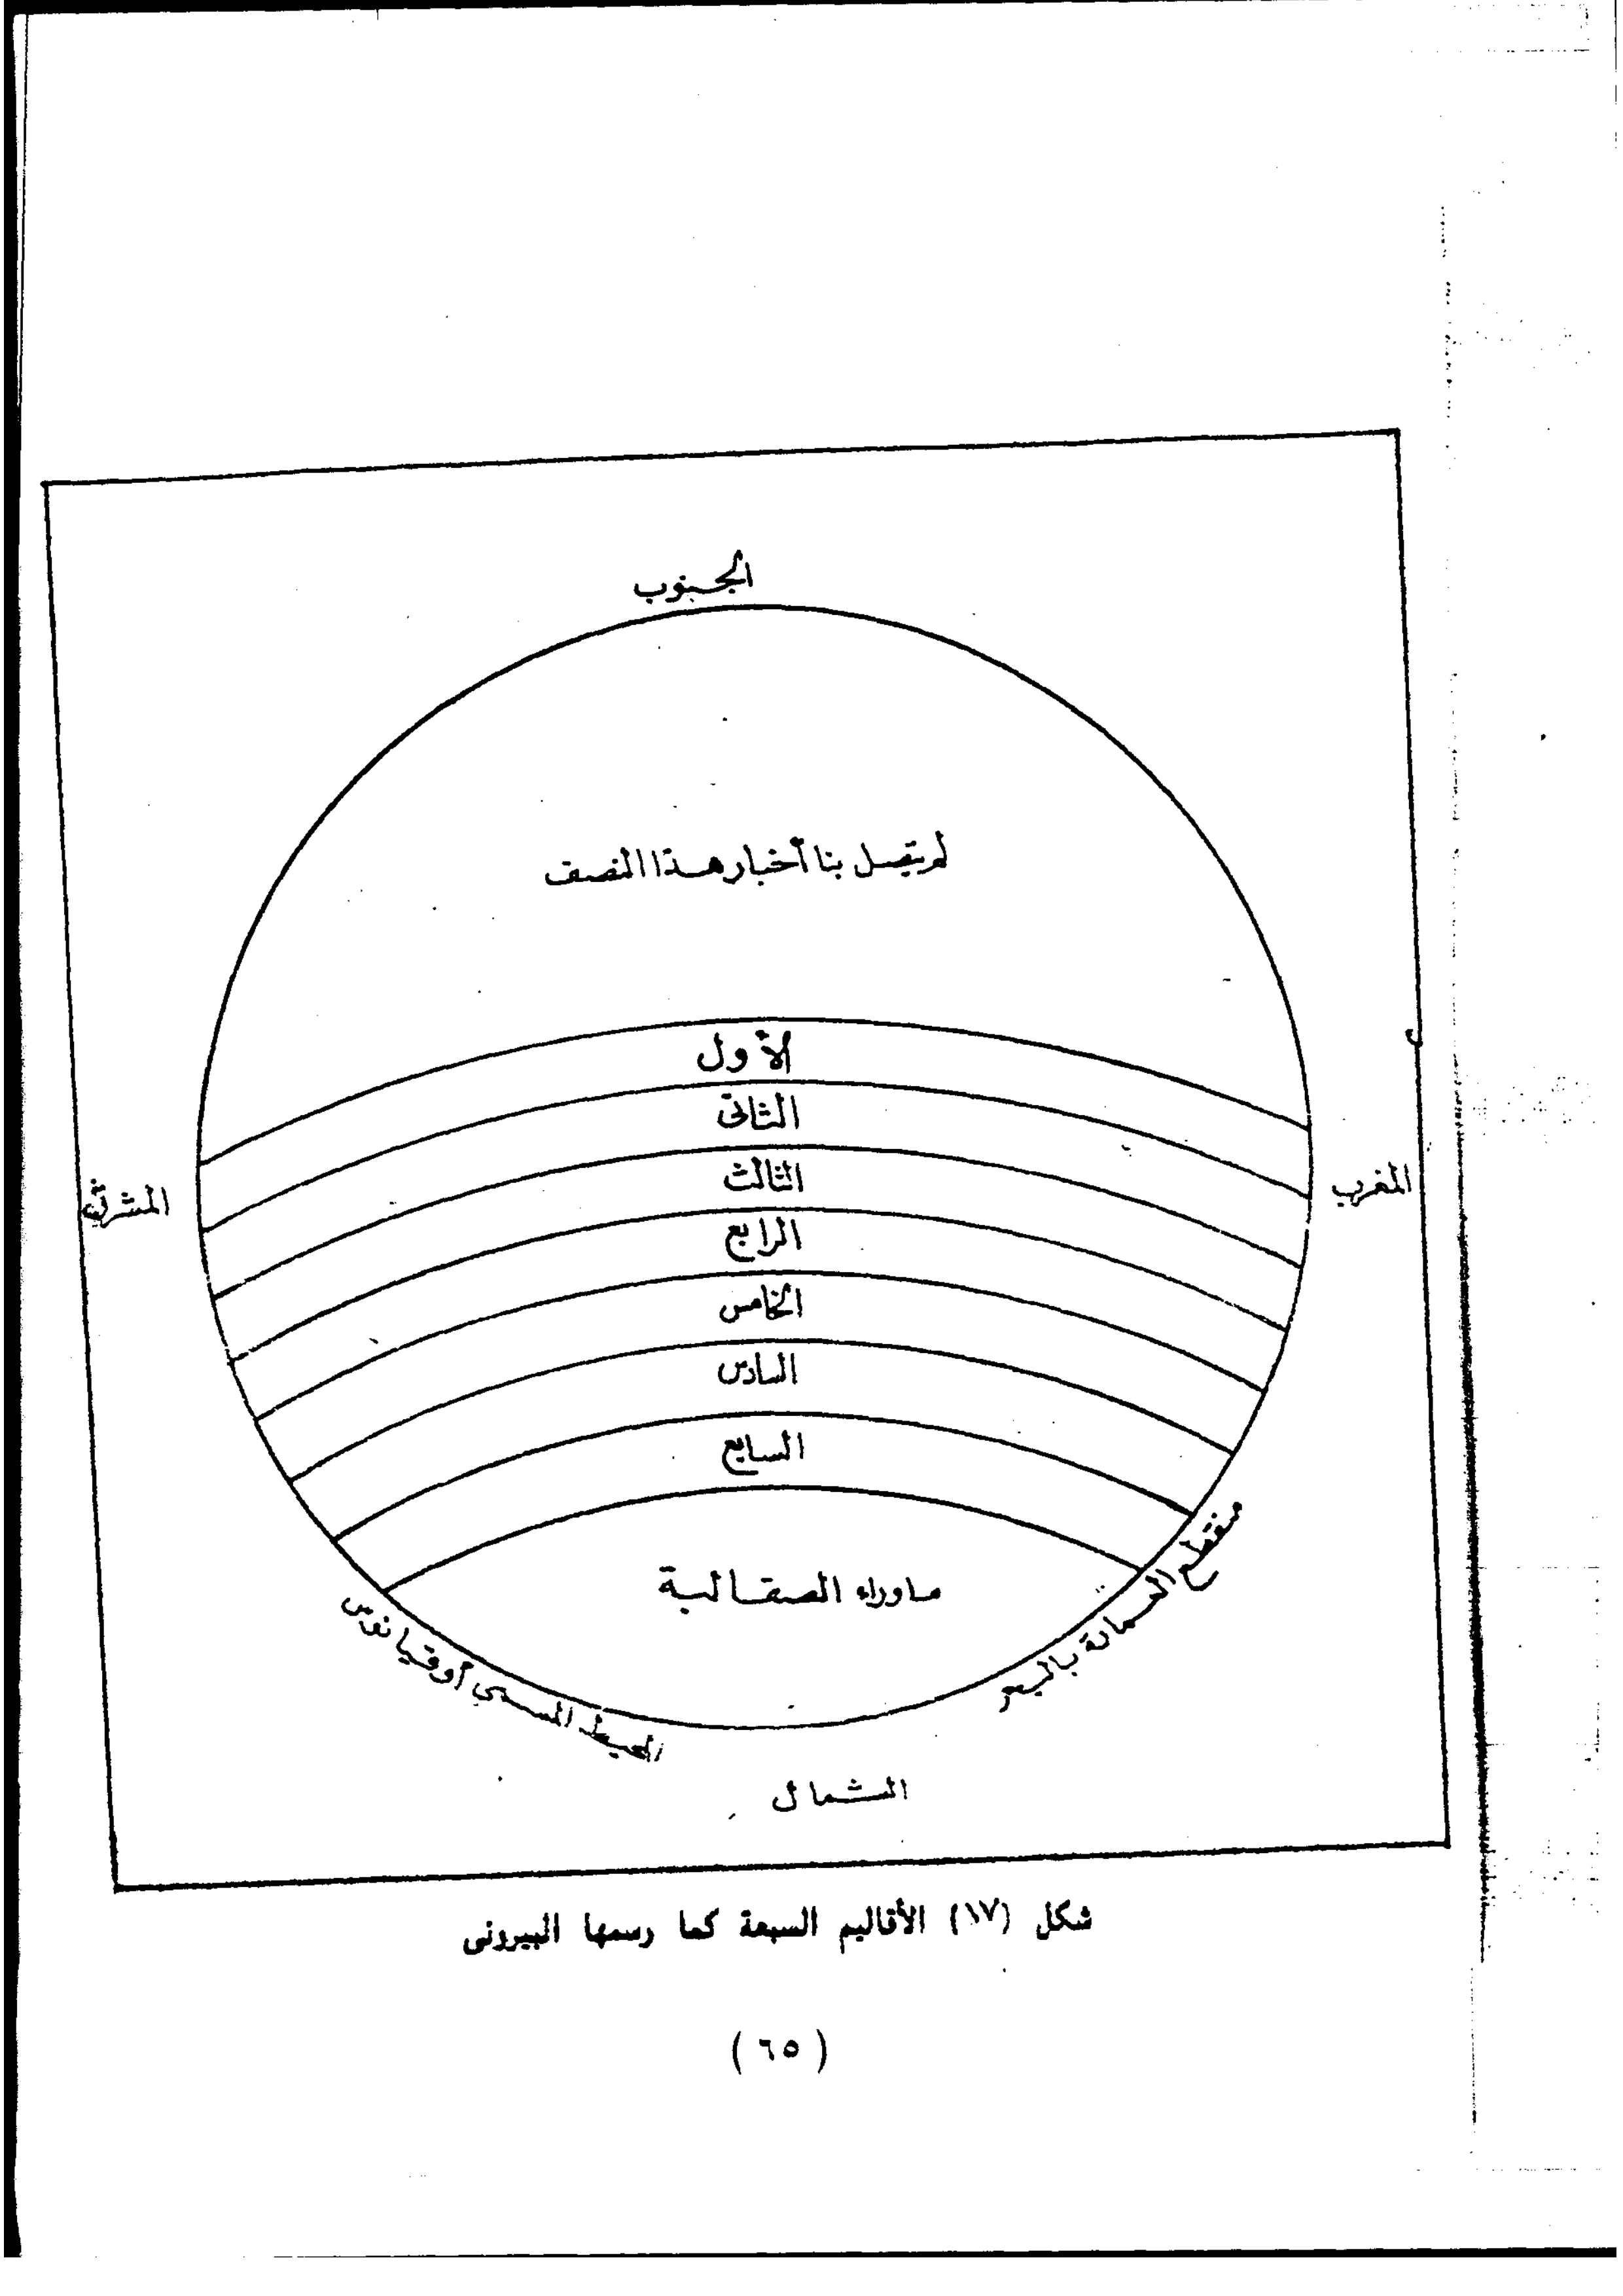 الجنوب
لم يتصل بنا أخبار هذا النصف
الأول
الثانى
الثالث
المغرب
المشرق
الرابع
الخامس
السادس
السابع
ما وراء الصقالبة
منقطع العمارة بالبحر
المحيط المسمي أوقيانوس
الشمال
شكل (١٧) الأقاليم السبعة كما رسمها البيرونى
( ٦٥ )